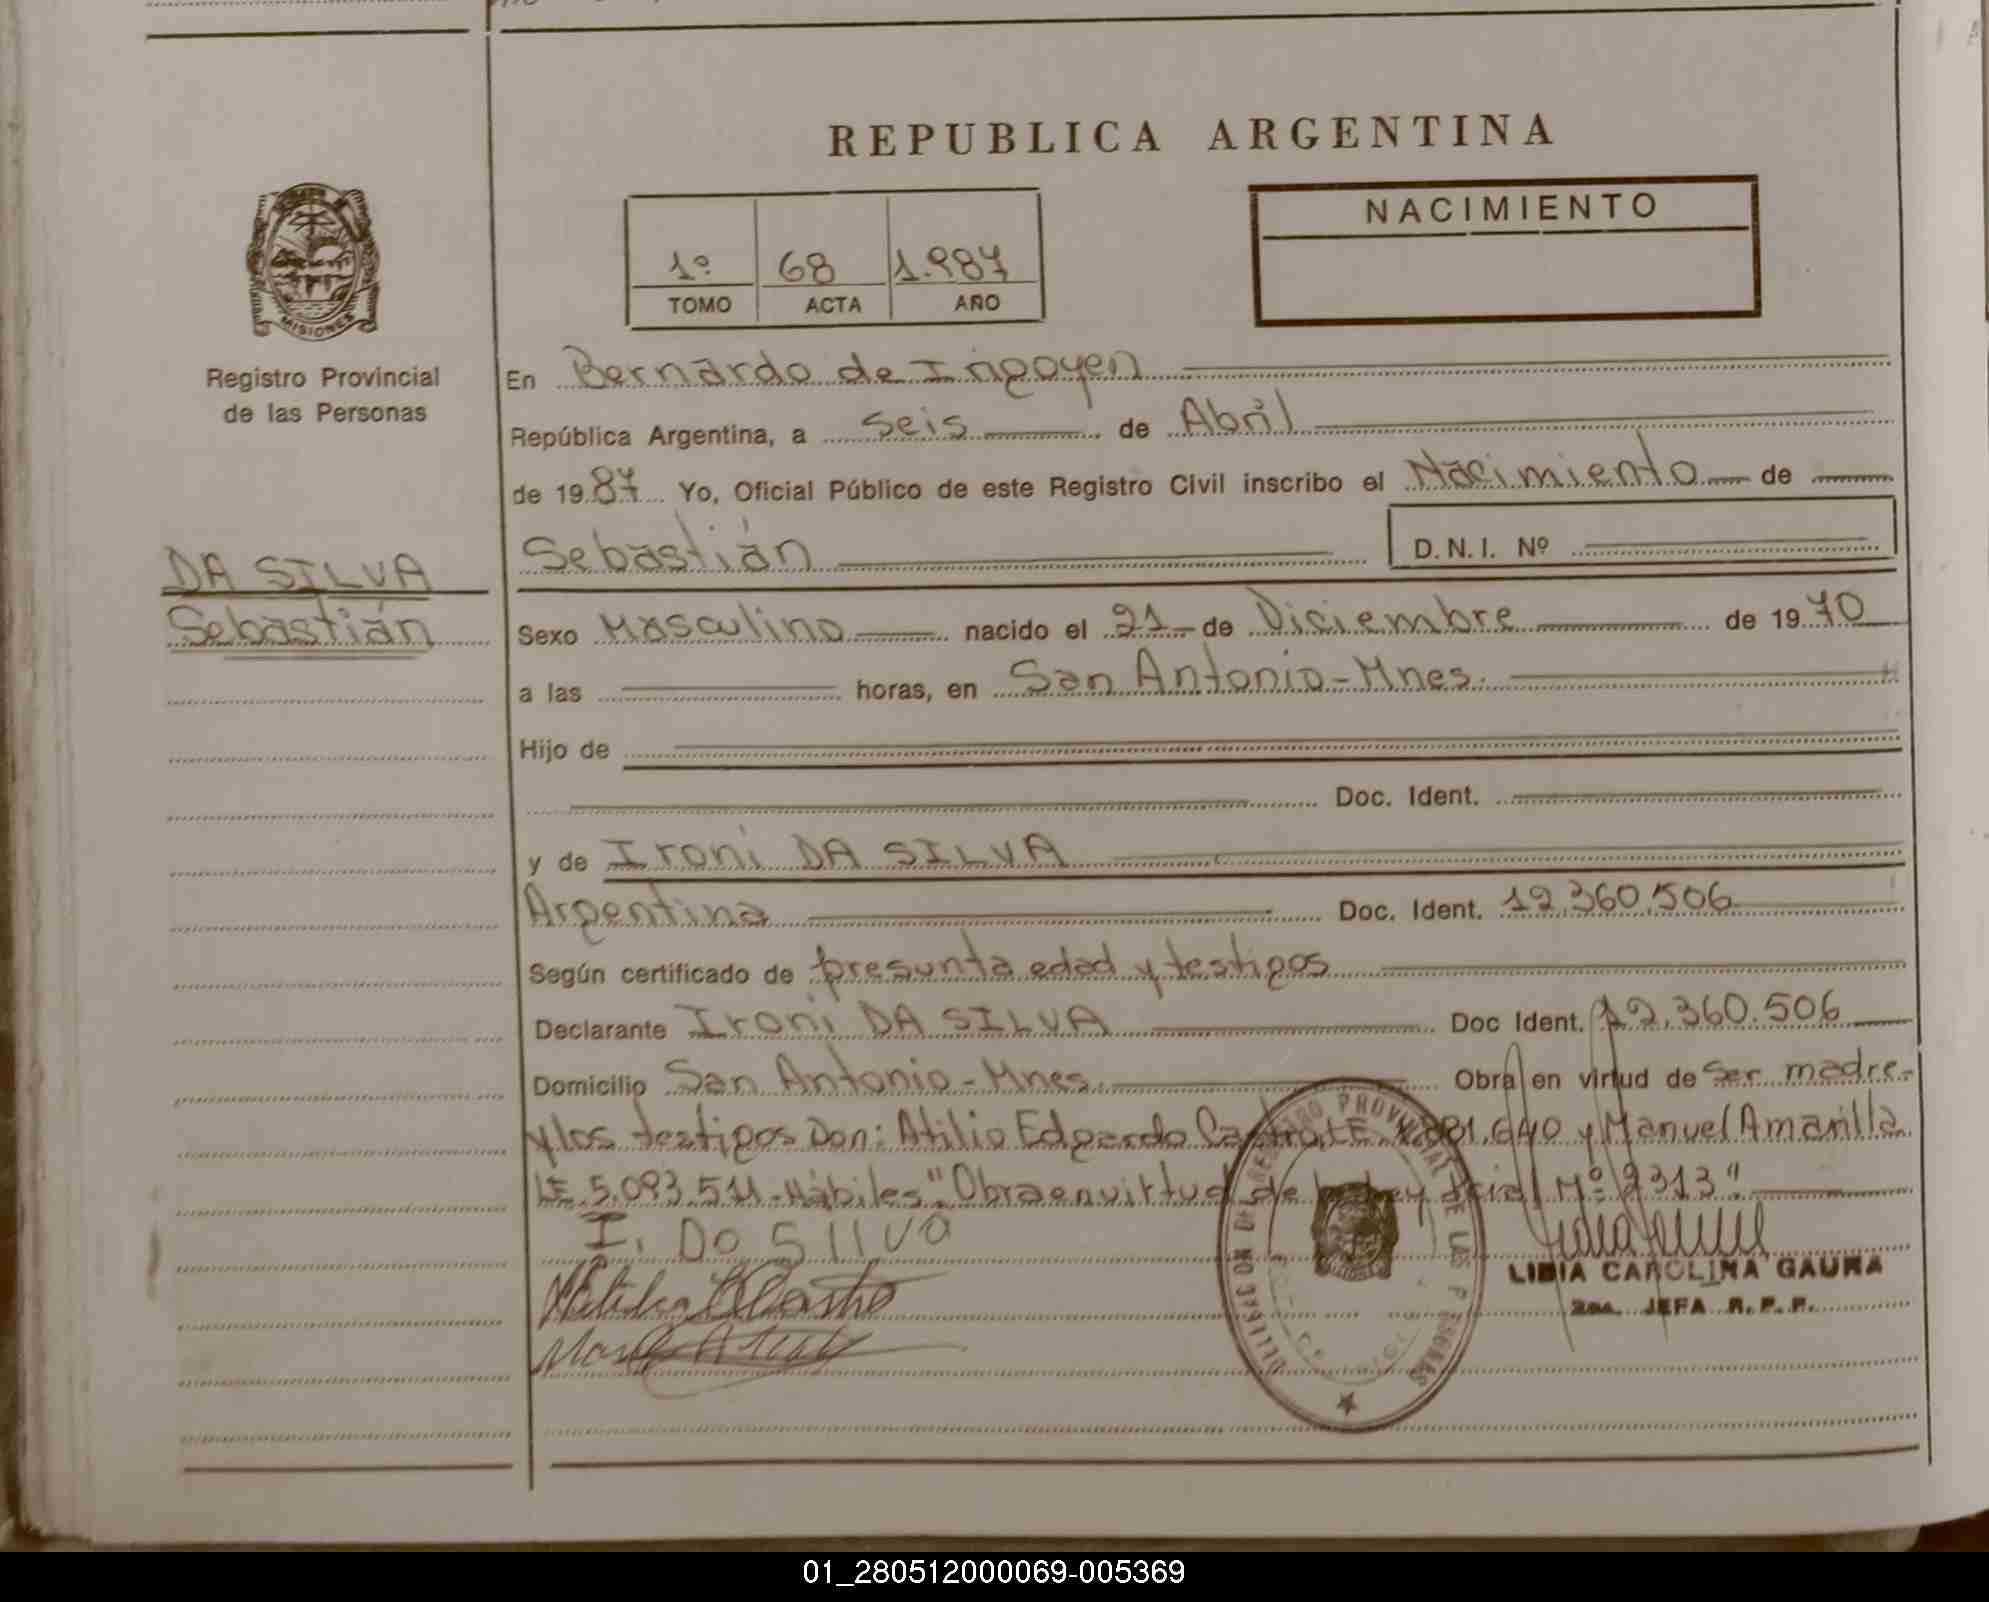 REPUBLICA ARGENTINA
NACIMIENTO
1º 68 1.987
TOMO ACTA AÑO
MISIONES
Registro Provincial
de las Personas
DA SILVA
Sebastián
En Bernardo de Irigoyen
República Argentina, a seis de Abril
de 1987 Yo, Oficial Público de este Registro Civil inscribo el Nacimiento de
Sebastián D.N.I. Nº
Sexo Masculino nacido el 21 de Diciembre de 1970
a las horas, en San Antonio-Mnes.
Hijo de
Doc. Ident.
y de Ironi DA SILVA
Argentina Doc. Ident. 12.360.506
Según certificado de presunta edad y testigos
Declarante Ironi DA SILVA Doc Ident. 12.360.506
Domicilio San Antonio-Mnes. Obra en virtud de ser madre-
y los testigos Don: Atilio Edgardo Castro, L.E. y Manuel Amarilla
L.E. 5.093.511-Hábiles". Obra en virtud de Nº 2313".
I. Da Silva
LIDIA CAROLINA GAUNA
2da. JEFA R.P.P.
DELEGACION DEL REGISTRO PROVINCIAL DE LAS PERSONAS
01_280512000069-005369